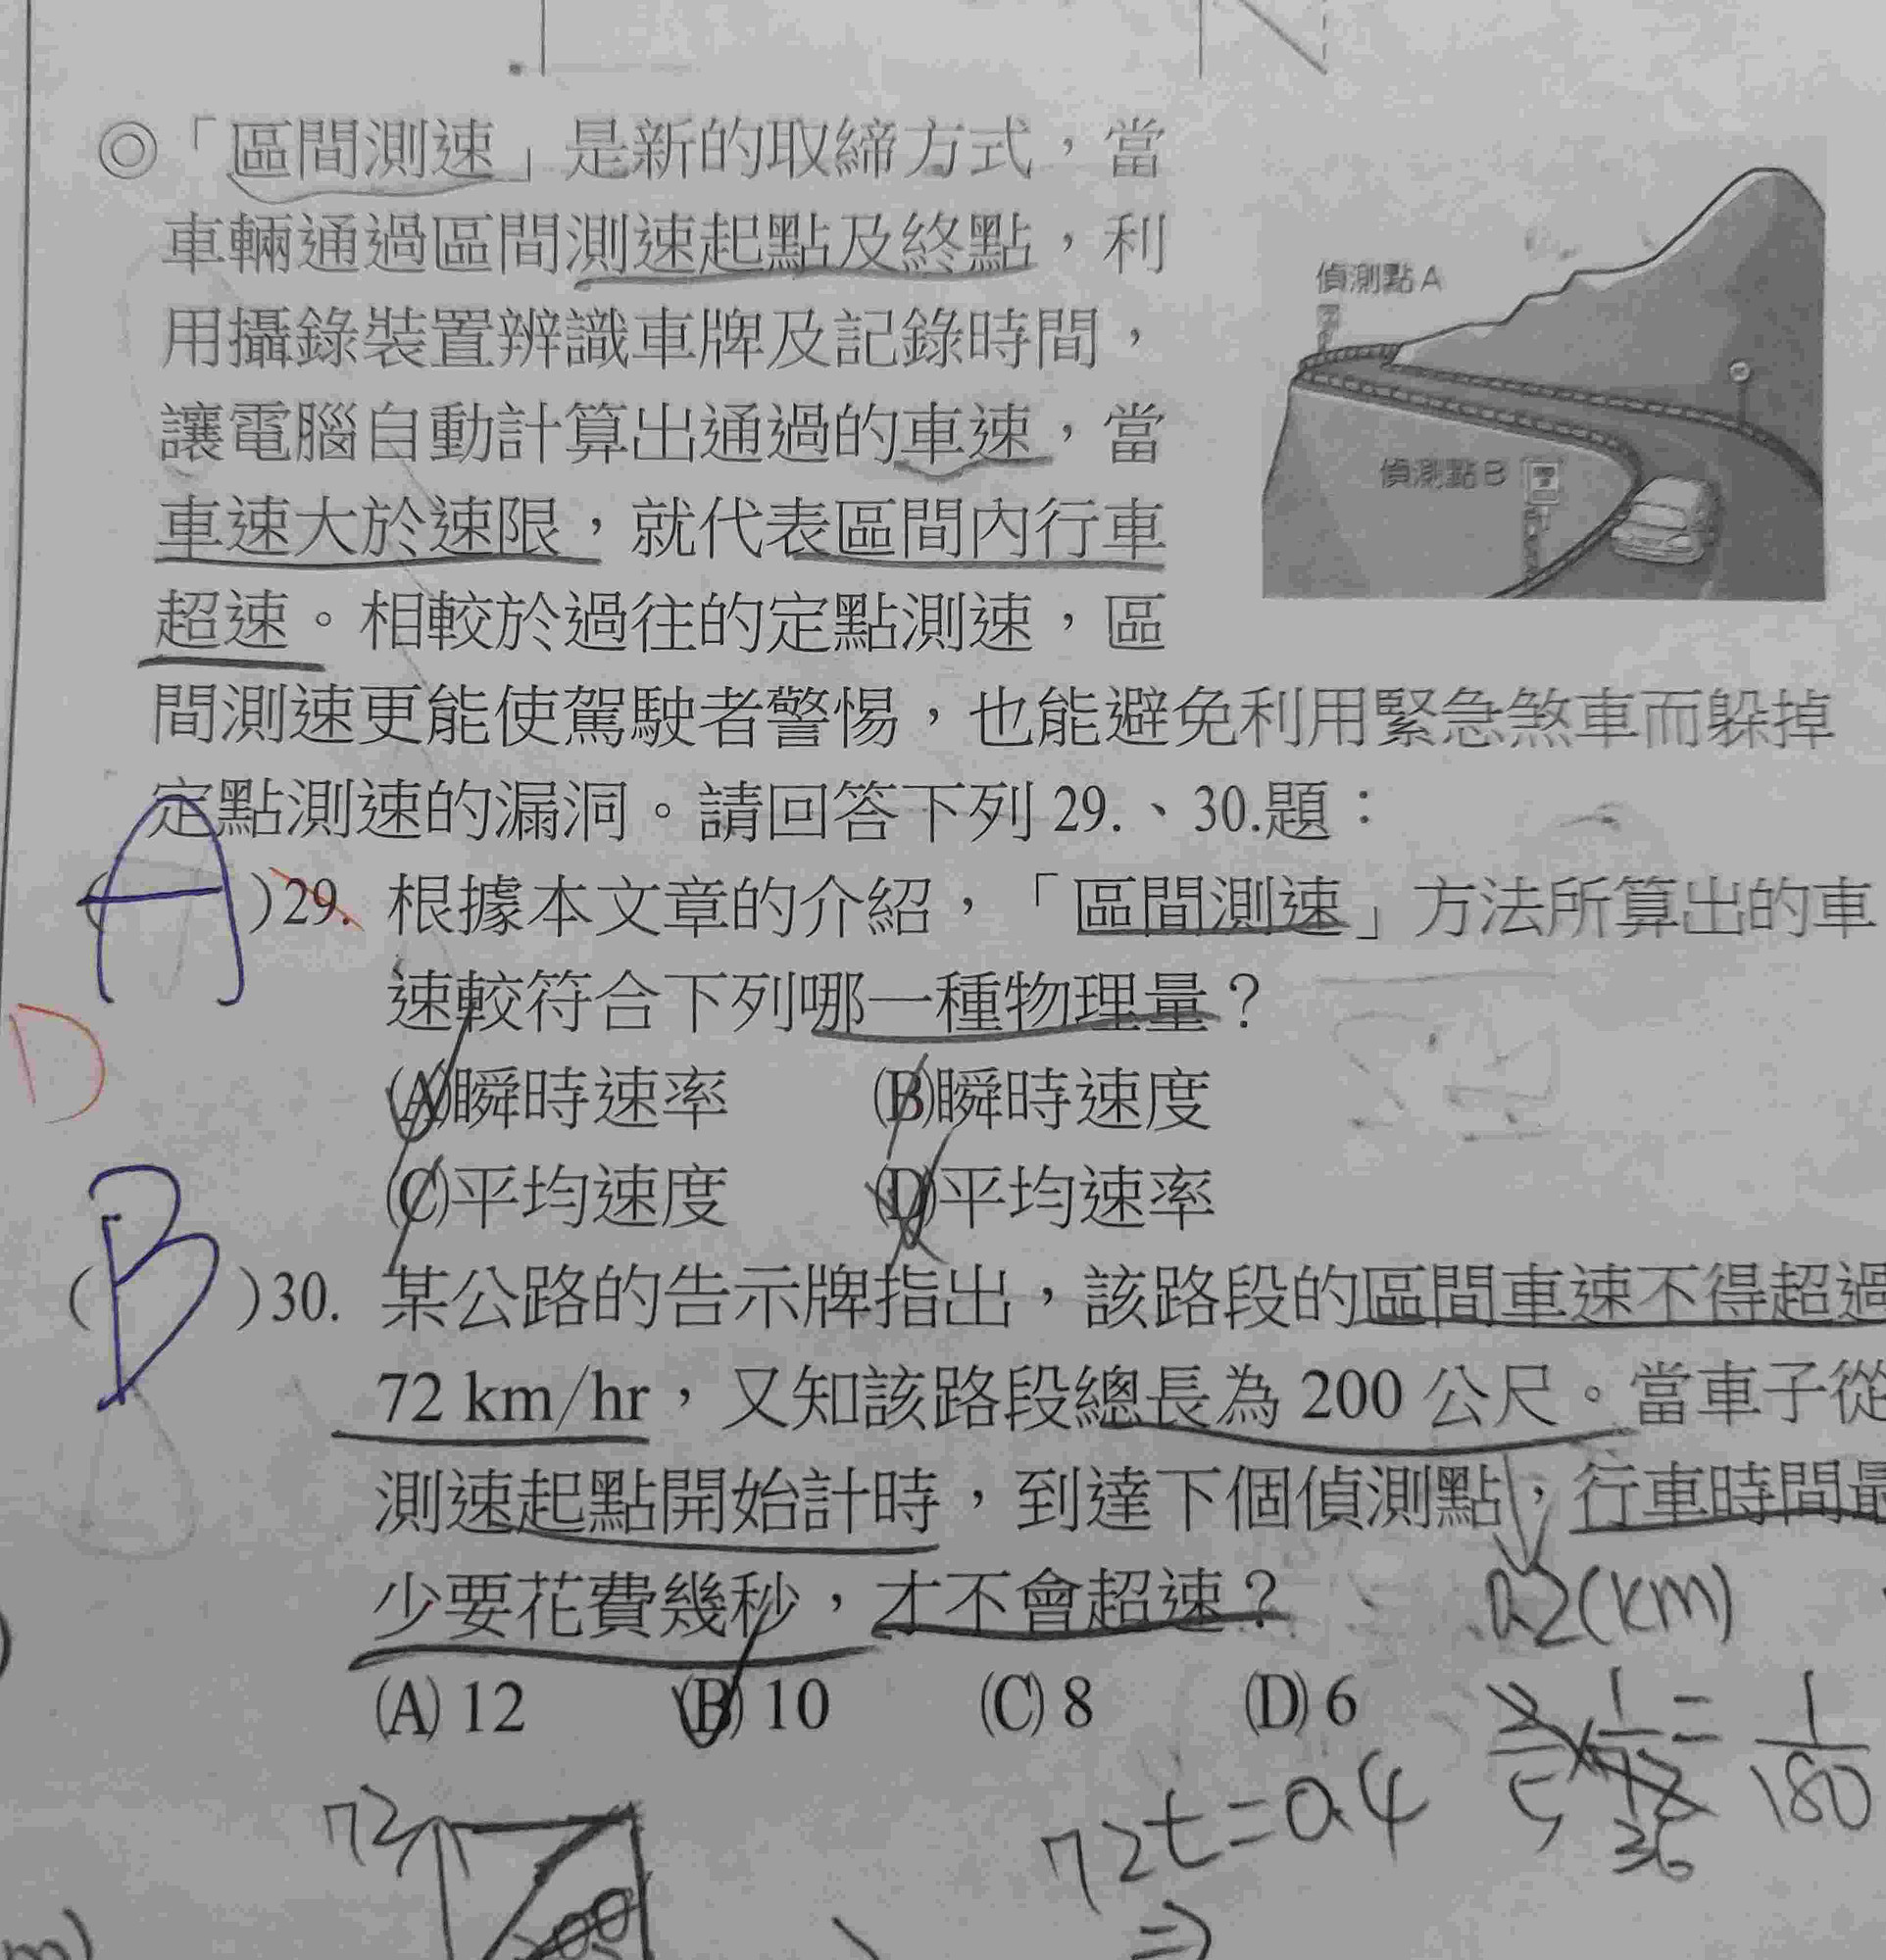 ◎「區間測速」是新的取締方式，當
車輛通過區間測速起點及終點，利
用攝錄裝置辨識車牌及記錄時間，
讓電腦自動計算出通過的車速，當
車速大於速限，就代表區間內行車
超速。相較於過往的定點測速，區
間測速更能使駕駛者警惕，也能避免利用緊急煞車而躲掉
定點測速的漏洞。請回答下列 29.、30.題：
偵測點 A
偵測點 B
(A)29. 根據本文章的介紹，「區間測速」方法所算出的車
速較符合下列哪一種物理量？
D
(A)瞬時速率 (B)瞬時速度
(C)平均速度 (D)平均速率
(B)30. 某公路的告示牌指出，該路段的區間車速不得超過
72 km/hr，又知該路段總長為 200 公尺。當車子從
測速起點開始計時，到達下個偵測點，行車時間最
少要花費幾秒，才不會超速？
0.2(km)
(A) 12 (B) 10 (C) 8 (D) 6
2/5 × 1/72 = 1/180
36
72
72t=0.4
200
⇒
m)